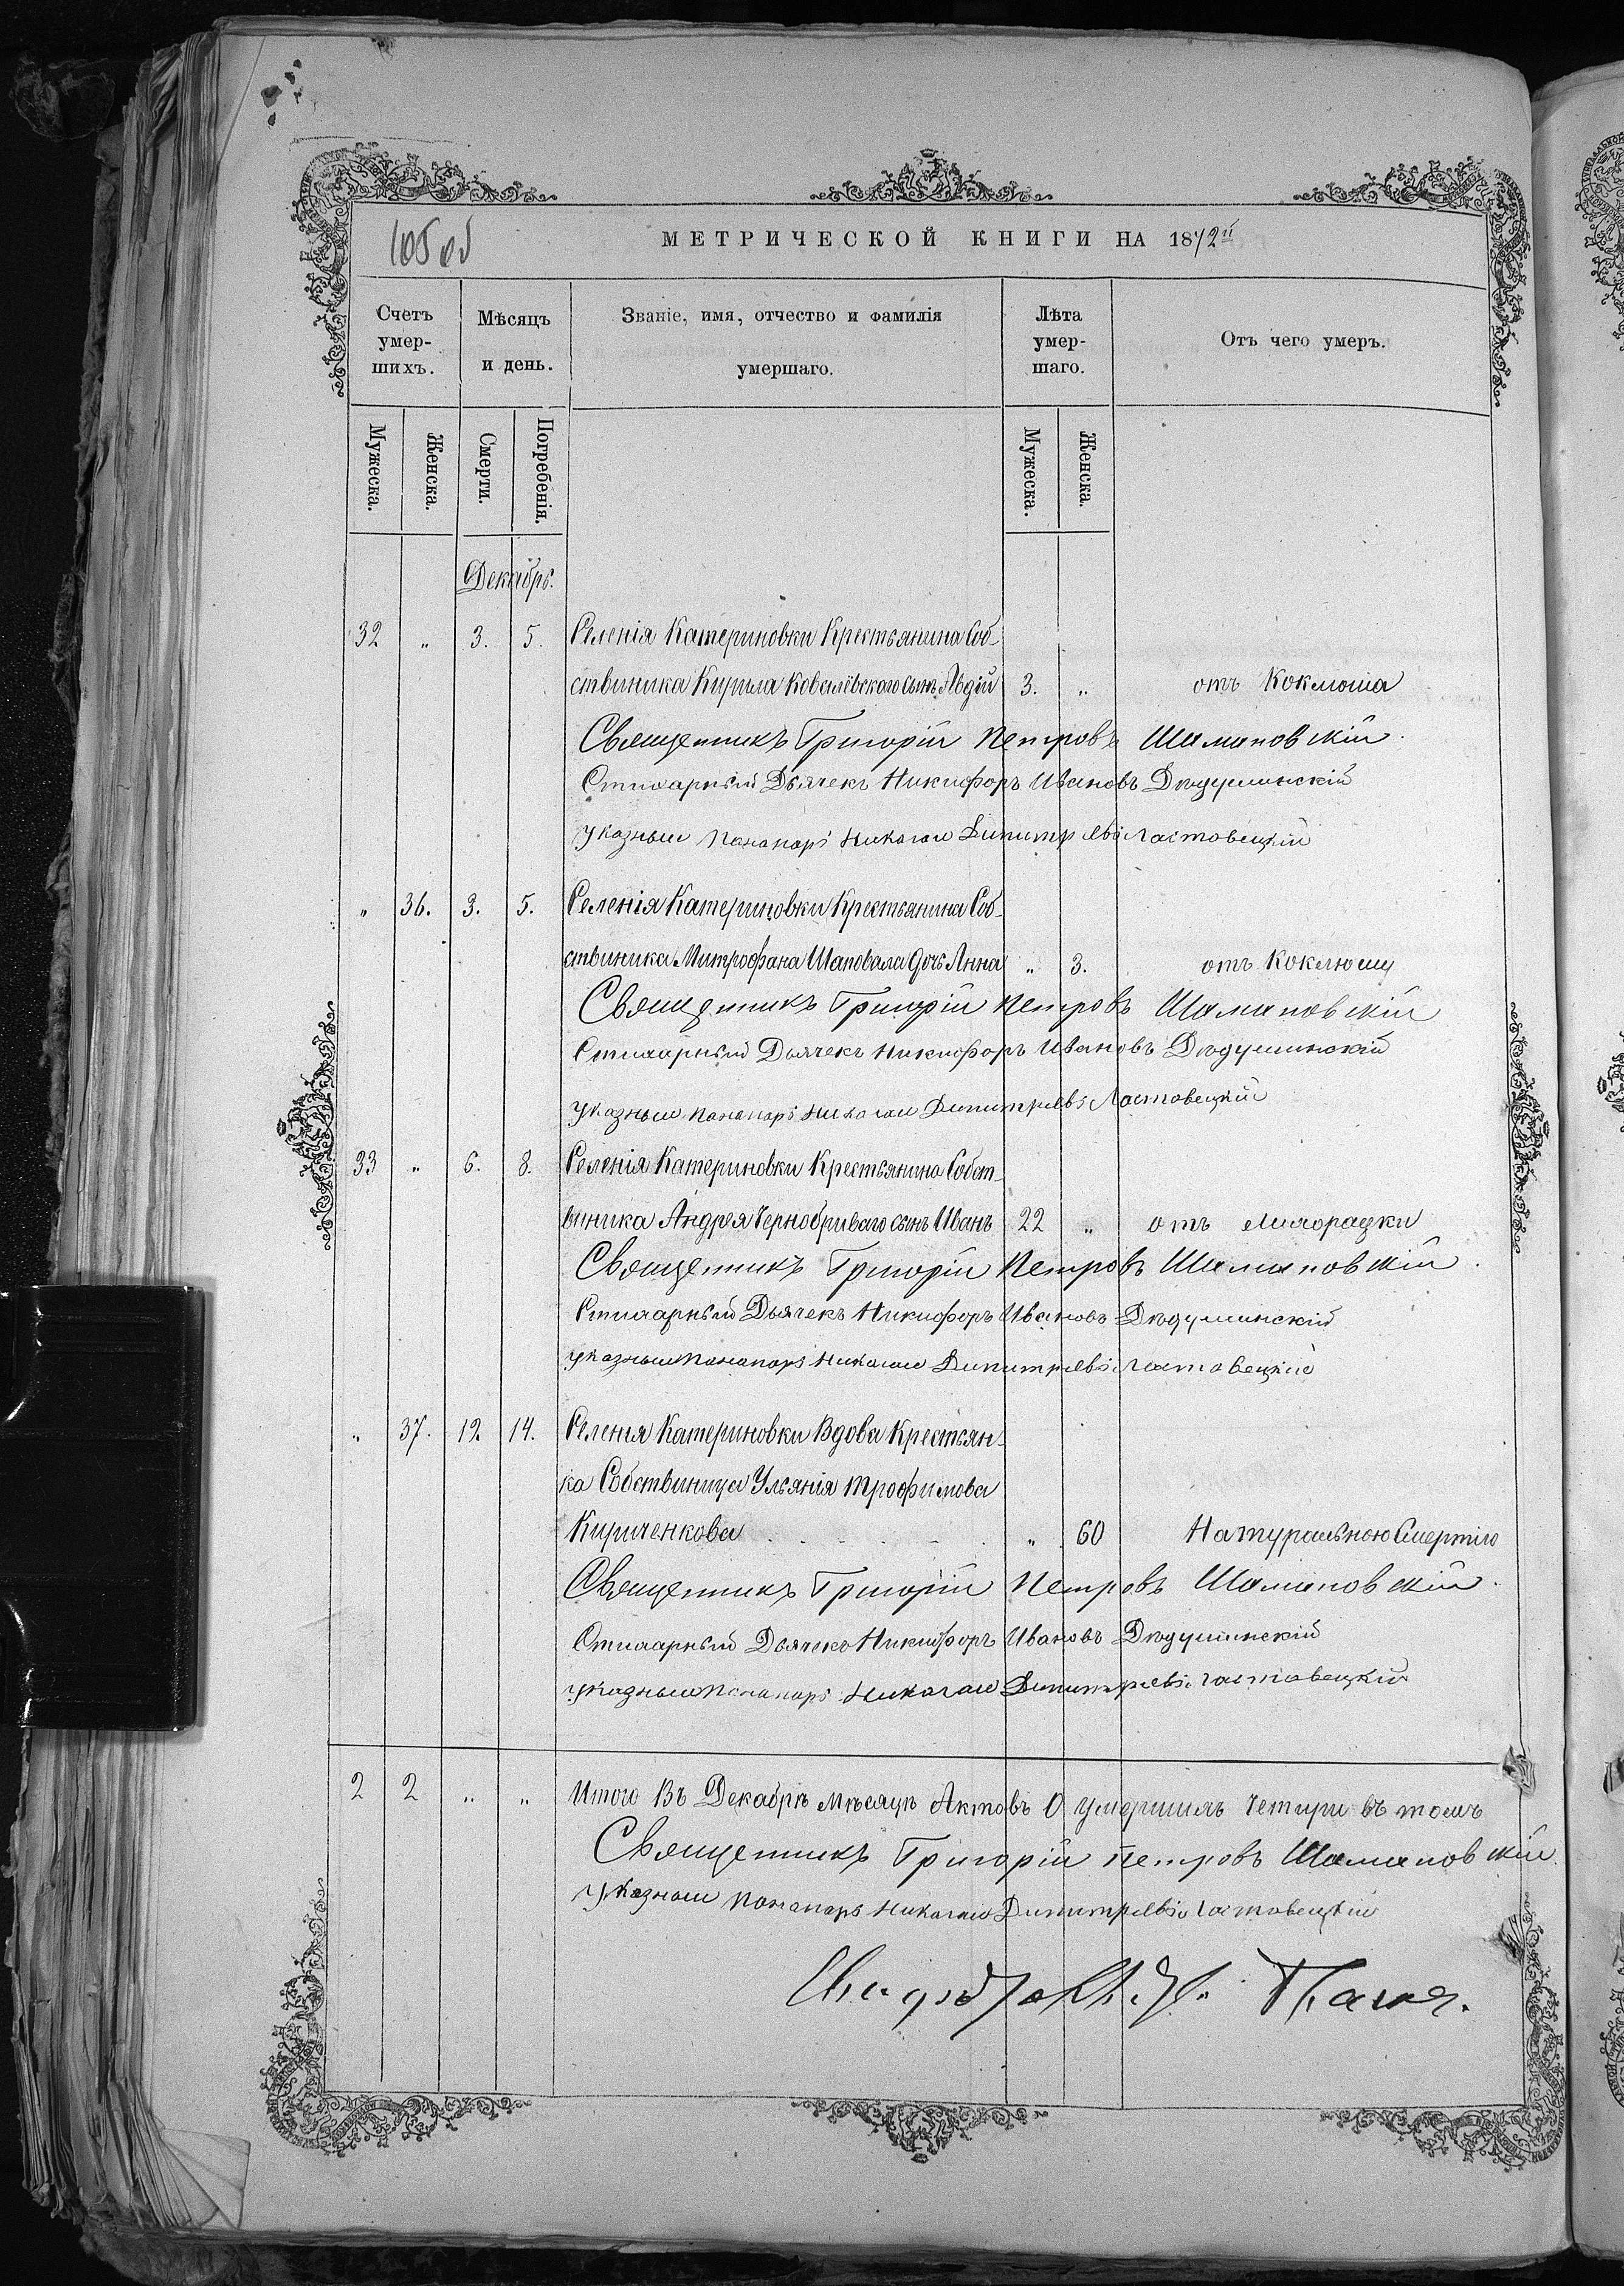 МЕТРИЧЕСКОЙ КНИГИ НА 1872й
Счетъ умершихъ. Мѣсяцъ и день. Званіе, имя, отчество и фамилія умершаго. Лѣта умершаго. Отъ чего умеръ.
Мужеска. Женска. Смерти. Погребенія. Мужеска. Женска.
Декабрь.
32 „ 3. 5. Селенія Катериновки Крестьянина Соб-
ственика Кирила Ковалевскаго сынъ Авдій 3. „ отъ Коклюша
Священникъ Григорій Петровъ Шимановскій.
Стихарный Дьячекъ Никифоръ Ивановъ Дѣдушинскій
указный Панамарь Николай Димитріевъ Ластовецкій
„ 36. 3. 5. Селенія Катериновки Крестьянина Соб-
ственика Митрофана Шаповала дочь Анна „ 3. отъ Коклюшу
Священникъ Григорій Петровъ Шимановскій
Стихарный Дьячекъ Никифоръ Ивановъ Дѣдушинскій
указный Панамарь Николай Димитріевъ Ластовецкій
33 „ 6. 8. Селенія Катериновки Крестьянина Собст-
виника Андрея Чернобриваго сынъ Иванъ 22 „ отъ лихорадки
Священникъ Григорій Петровъ Шимановскій.
Стихарный Дьячекъ Никифоръ Ивановъ Дѣдушинскій
указный Панамарь Николай Димитріевъ Ластовецкій
„ 37. 12. 14. Селенія Катериновки Вдова Крестьян-
ка Собствиница Ульянія Трофимова
Кириченкова „ 60 Натуральною Смертію
Священникъ Григорій Петровъ Шимановскій.
Стихарный Дьячекъ Никифоръ Ивановъ Дѣдушинскій
указный Панамарь Николай Димитріевъ Ластовецкій
2 2 „ „ Итого Въ Декабрѣ мѣсяцѣ Актовъ О умершихъ Четири въ томъ
Священникъ Григорій Петровъ Шимановскій.
Указный Панамарь Николай Димитріевъ Ластовецкій